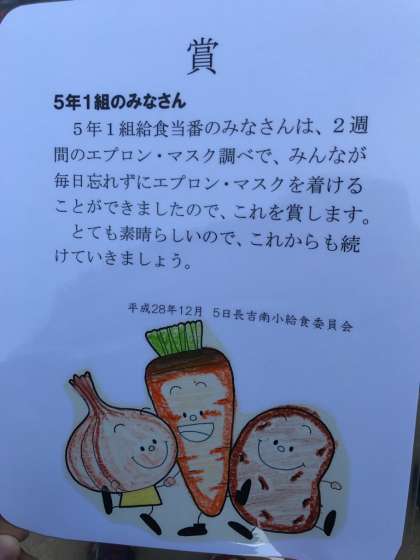 賞
5年1組のみなさん
5年1組給食当番のみなさんは、2週
間のエプロン・マスク調べで、みんなが
毎日忘れずにエプロン・マスクを着ける
ことができましたので、これを賞します。
とても素晴らしいので、これからも続
けていきましょう。
平成28年12月 5日長吉南小給食委員会